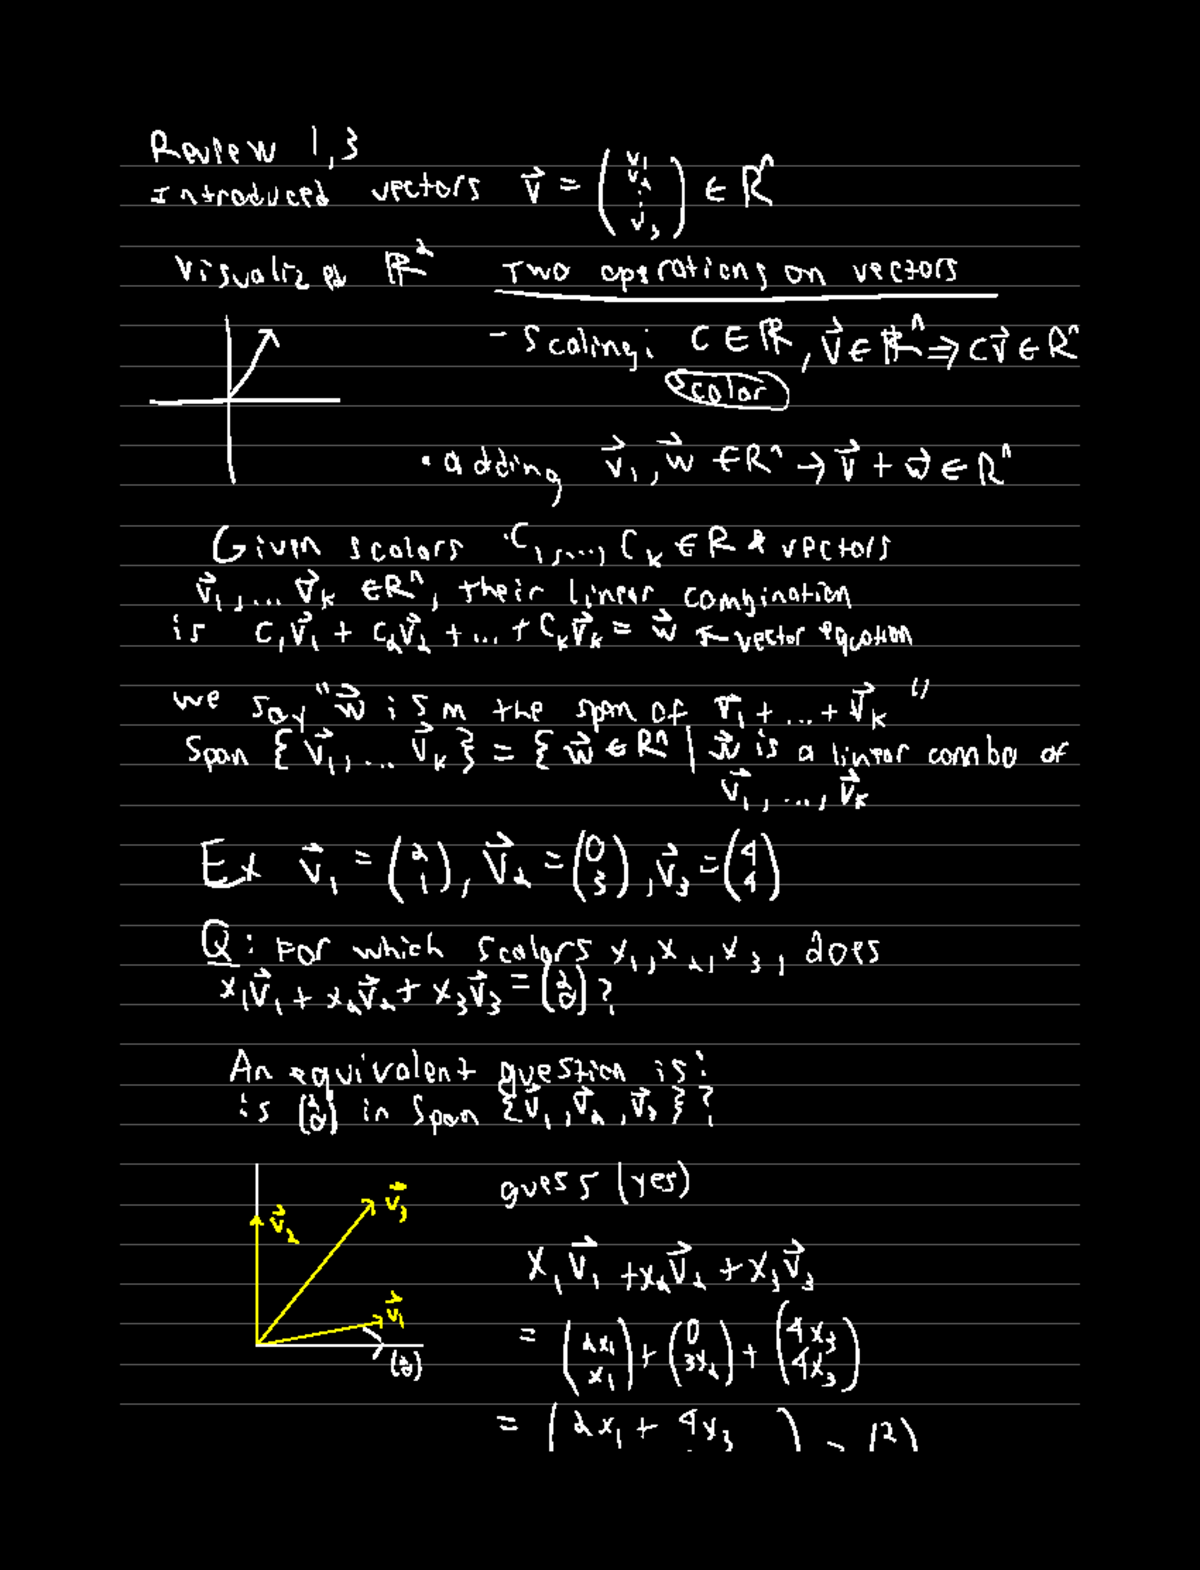 Review 1,3
Introduced vectors v⃗ = (v₁ v₂ ⋮ v₃) ∈ Rⁿ
Visualized ℝ² Two operations on vectors
- Scaling: C ∈ ℝ, v⃗ ∈ ℝⁿ ⇒ Cv⃗ ∈ Rⁿ
scalar
• adding v⃗₁, w⃗ ∈ Rⁿ → v⃗ + w⃗ ∈ Rⁿ
Given scalars C₁,...., Cₖ ∈ R & vectors
v⃗₁,... v⃗ₖ ∈ Rⁿ, their linear combination
is C₁v⃗₁ + C₂v⃗₂ + ... + Cₖv⃗ₖ = w⃗ ← vector equation
we say "w⃗ is in the span of v⃗₁ + ... + v⃗ₖ"
Span { v⃗₁,... v⃗ₖ } = { w⃗ ∈ Rⁿ | w⃗ is a linear combo of
v⃗₁, ..., v⃗ₖ
Ex v⃗₁ = (2 1), v⃗₂ = (0 3), v⃗₃ = (4 4)
Q: For which scalars x₁, x₂, x₃, does
x₁v⃗₁ + x₂v⃗₂ + x₃v⃗₃ = (2 0)?
An equivalent question is:
is (2 0) in Span {v⃗₁, v⃗₂, v⃗₃}?
guess (yes)
v⃗₃
v⃗₂
x₁v⃗₁ + x₂v⃗₂ + x₃v⃗₃
v⃗₁
= (2x₁ x₁) + (0 3x₂) + (4x₃ 4x₃)
(2 0)
= (2x₁ + 4x₃